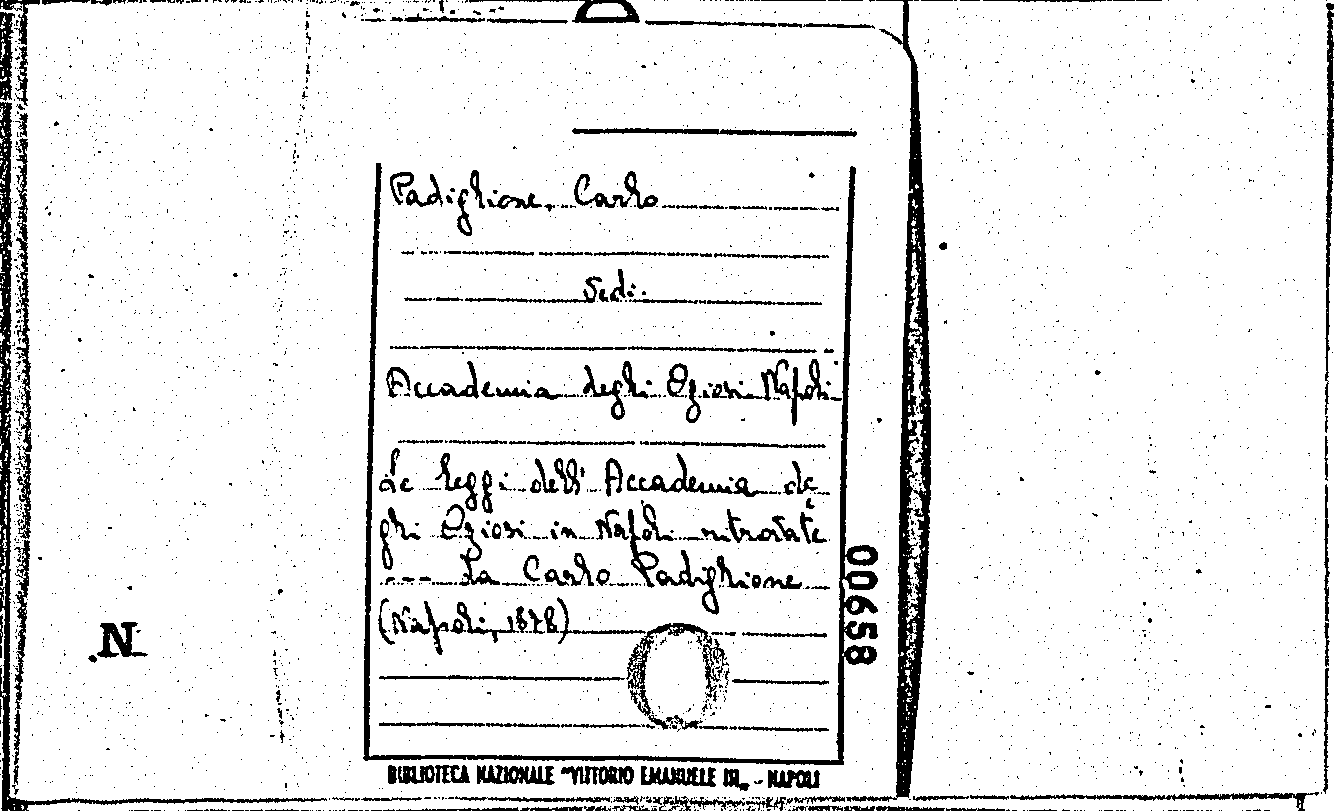 Padiglione, Carlo
Vedi:
Accademia degli Oziosi. Napoli
Le leggi dell' Accademia de
gli Oziosi in Napoli ritrovate
--- da Carlo Padiglione
(Napoli, 1878)
00658
N
BIBLIOTECA NAZIONALE "VITTORIO EMANUELE III„ - NAPOLI